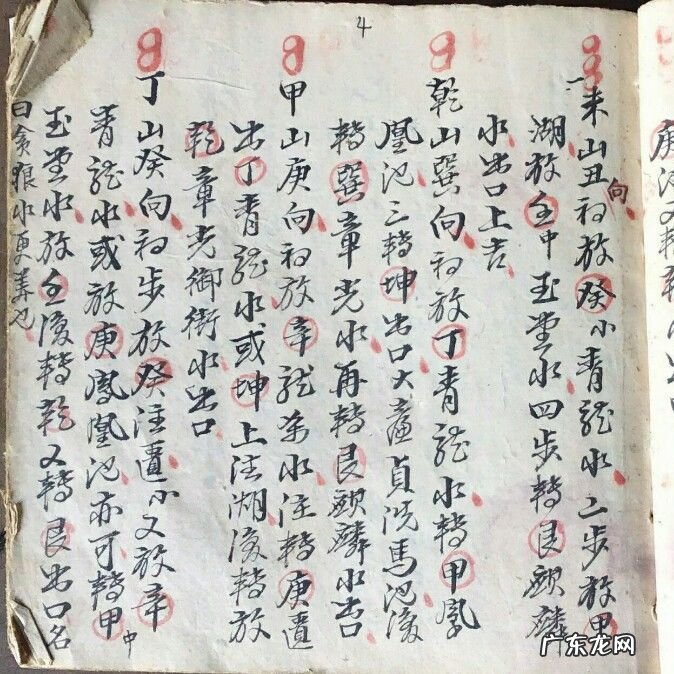 4
未山丑向初放癸小青龍水二步放甲
湖放壬中玉堂水四步轉艮麒麟
水出口上吉
乾山巽向初放丁青龍水轉甲鳳
凰池三轉坤出口大產貞洗馬池後
轉巽章光水再轉艮麒麟水出口
甲山庚向初放辛龍水注轉庚遺
出丁青龍水或坤上注湖復轉放
乾章光御街水出口
丁山癸向初步放癸注遺小又放辛
青龍水或放庚鳳凰池亦可轉甲中
玉堂水放壬復轉乾又轉艮出口名
曰貪狼水更美也
庚
广东龙网